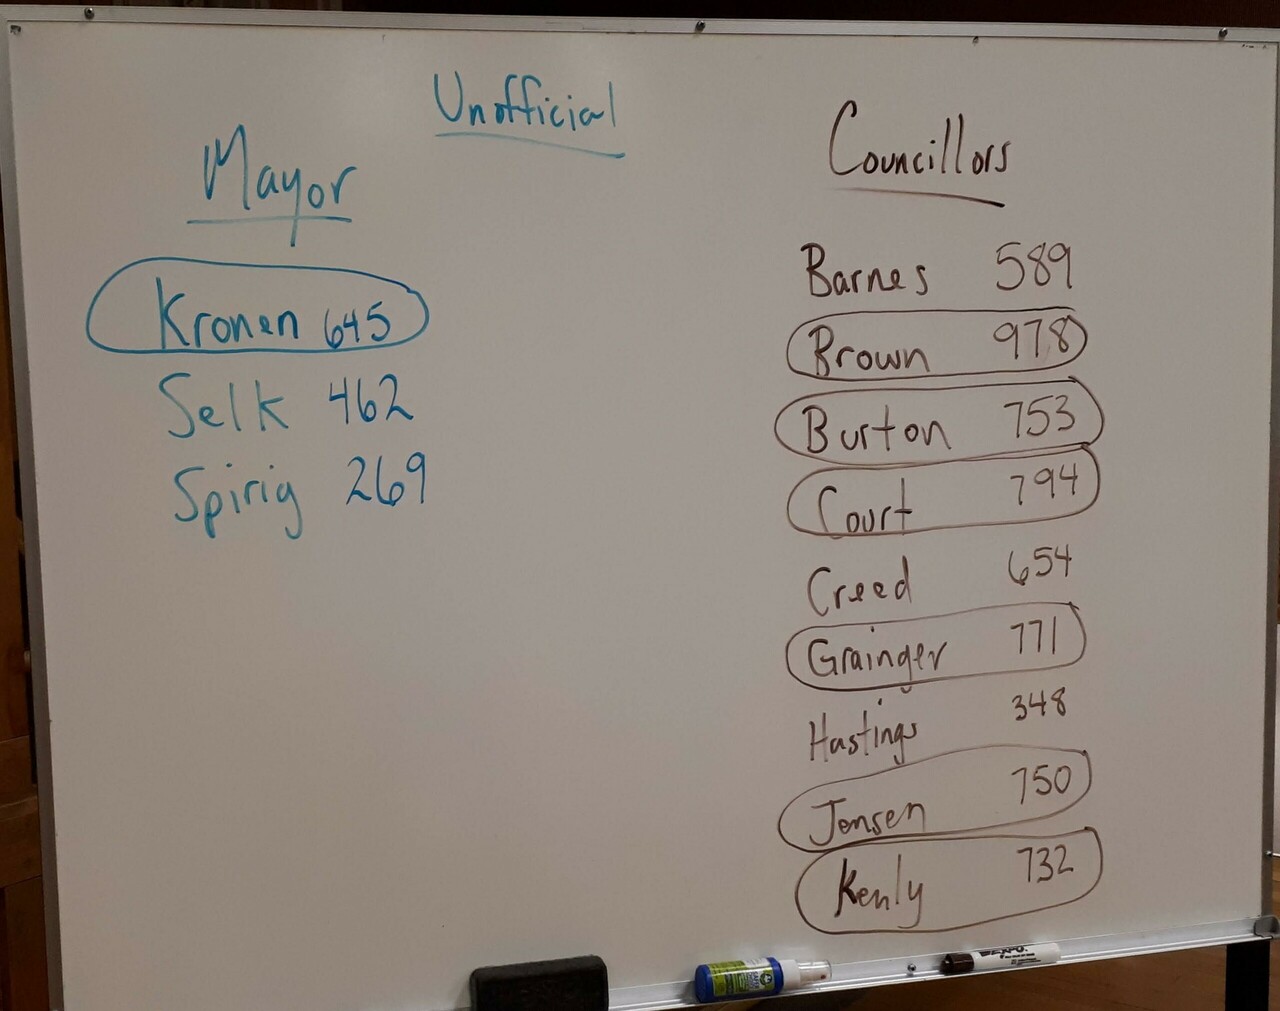 Unofficial
Mayor
Kronen 645
Selk 462
Spirig 269
Councillors
Barnes 589
Brown 978
Burton 753
Court 794
Creed 654
Grainger 771
Hastings 348
Jensen 750
Kenly 732
EXPO